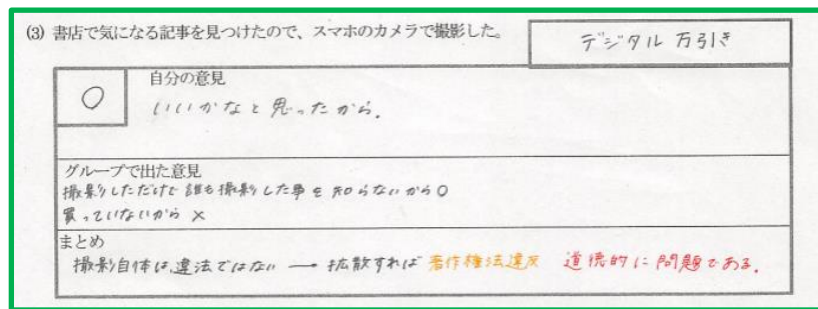 (3) 書店で気になる記事を見つけたので、スマホのカメラで撮影した。
デジタル 万引き
自分の意見
○
いいかなと思ったから.
グループで出た意見
撮影しただけで 誰も撮影した事を知らないから○
買っていないから ×
まとめ
撮影自体は、違法ではない → 拡散すれば 著作権法違反 道徳的に問題である.